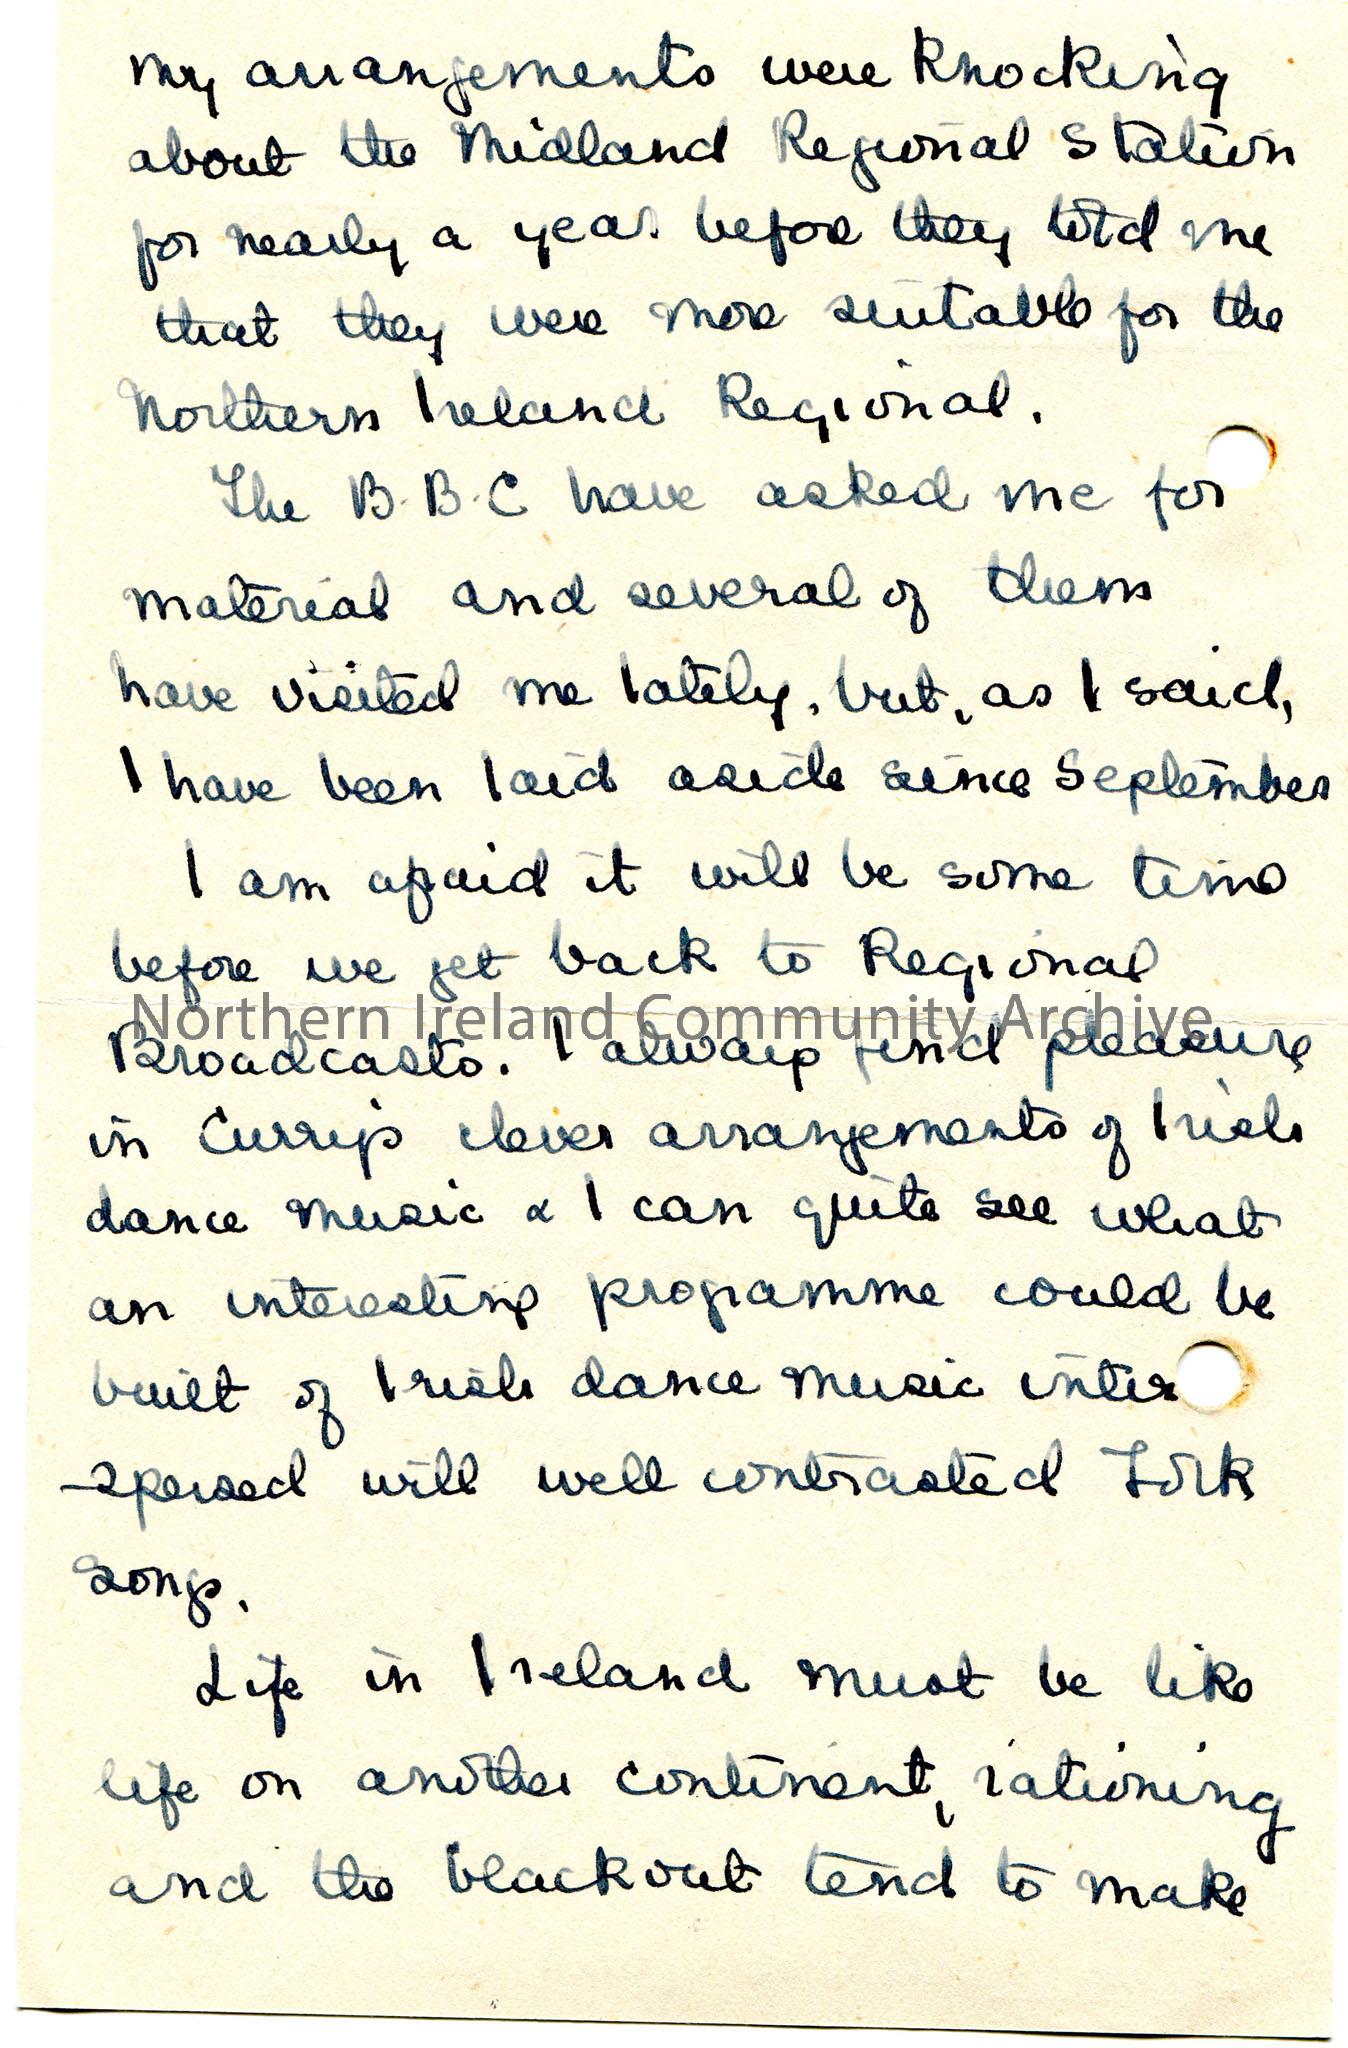 my arrangements were knocking
about the Midland Regional Station
for nearly a year before they told me
that they were more suitable for the
Northern Ireland Regional.
The B.B.C have asked me for
material and several of them
have visited me lately, but, as I said,
I have been laid aside since September
I am afraid it will be some time
before we get back to Regional
Northern Ireland Community Archive
Broadcasts. I always find pleasure
in Curry's clever arrangements of Irish
dance music & I can quite see what
an interesting programme could be
built of Irish dance music inter
-spersed will well contrasted Folk
Songs.
Life in Ireland must be like
life on another continent, rationing
and the blackout tend to make